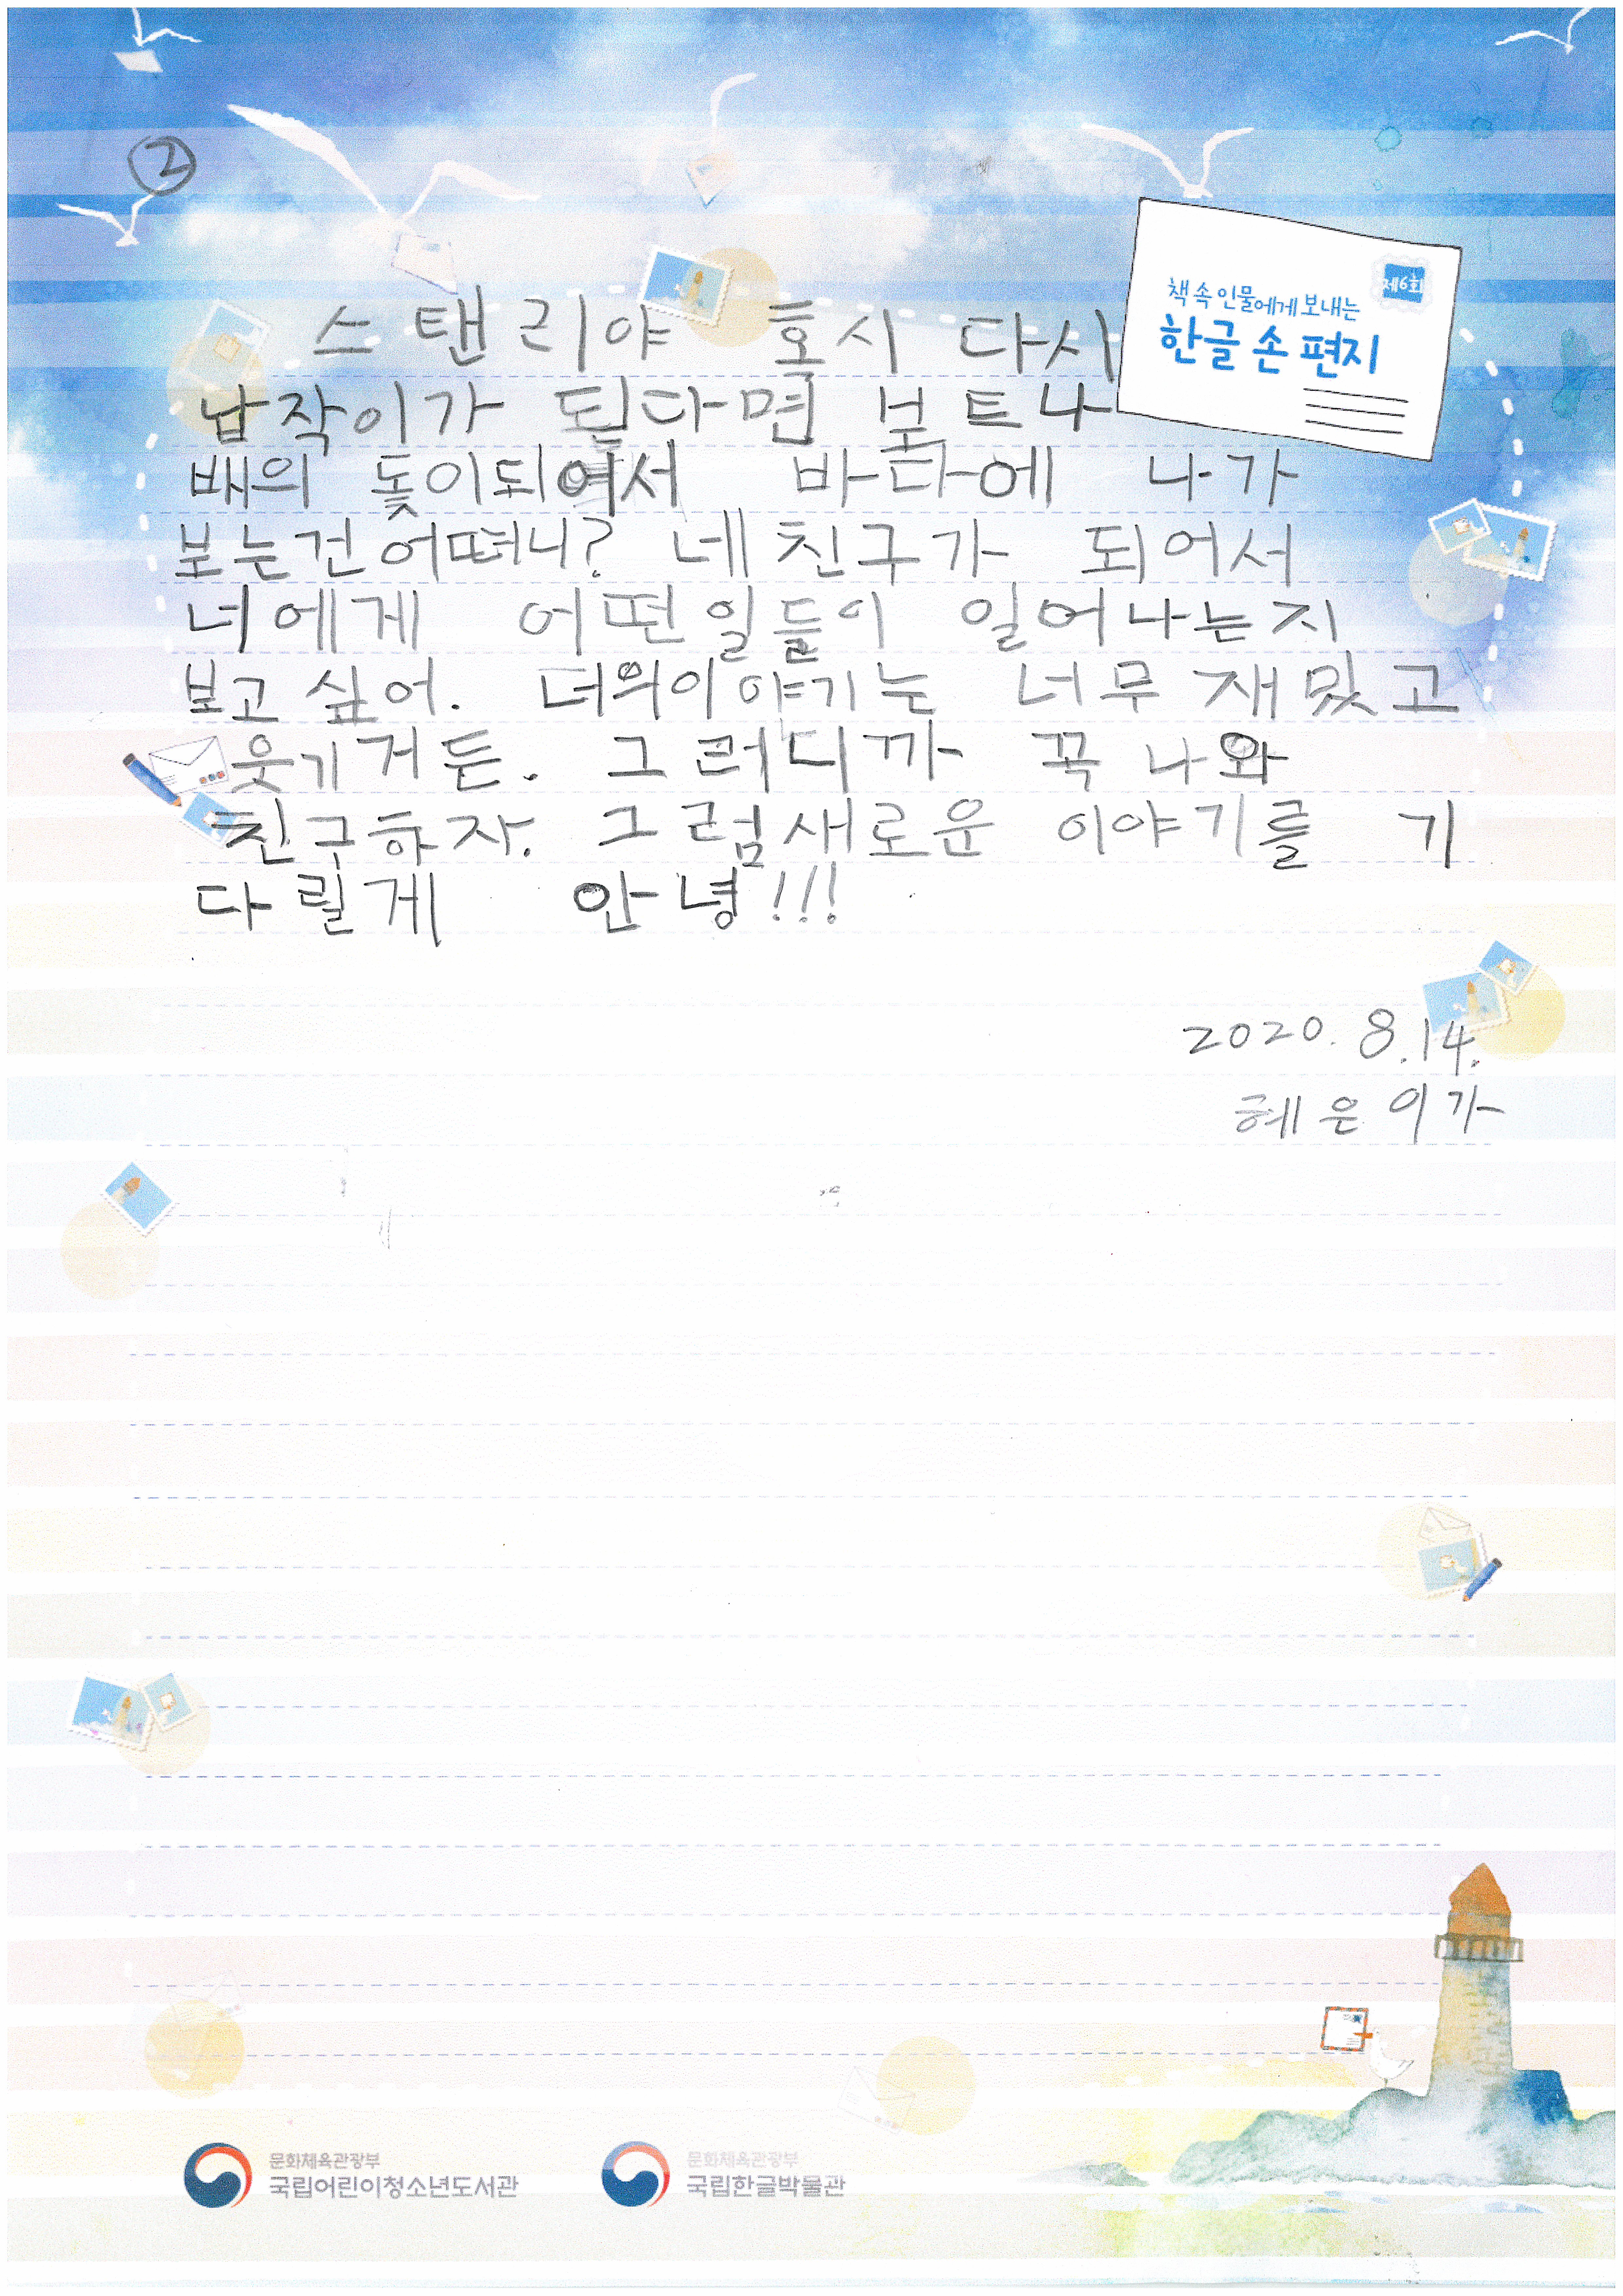 ②
제6회
책 속 인물에게 보내는
한글 손 편지
스탠리야 혹시 다시
납작이가 된다면 보트나
배의 돛이되여서 바다에 나가
보는건 어떠니? 네 친구가 되어서
너에게 어떤일들이 일어나는지
보고 싶어. 너의이야기는 너무 재밌고
웃기거든. 그러니까 꼭 나와
친구하자. 그럼새로운 이야기를 기
다릴게 안녕!!!
2020. 8.14.
혜은이가
문화체육관광부
국립어린이청소년도서관
문화체육관광부
국립한글박물관